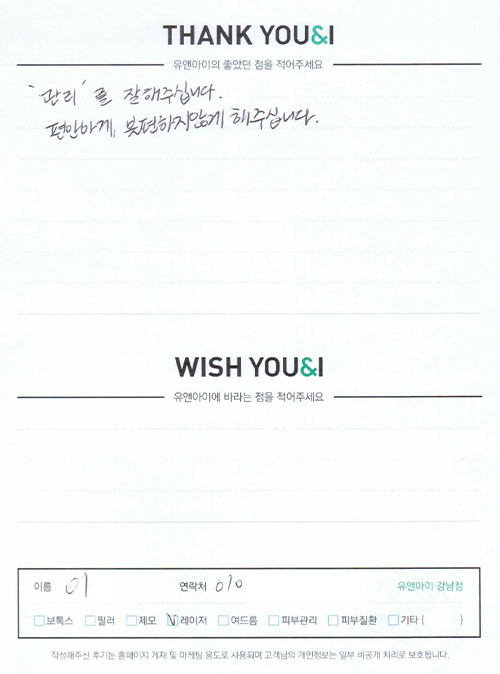 THANK YOU&I
유앤아이의 좋았던 점을 적어주세요
'관리'를 잘해주십니다.
편안하게, 불편하지않게 해주십니다.
WISH YOU&I
유앤아이에 바라는 점을 적어주세요
이름 이 연락처 010 유앤아이 강남점
보톡스 필러 제모 레이저 여드름 피부관리 피부질환 기타 ( )
작성해주신 후기는 홈페이지 게재 및 마케팅 용도로 사용되며 고객님의 개인정보는 일부 비공개 처리로 보호됩니다.